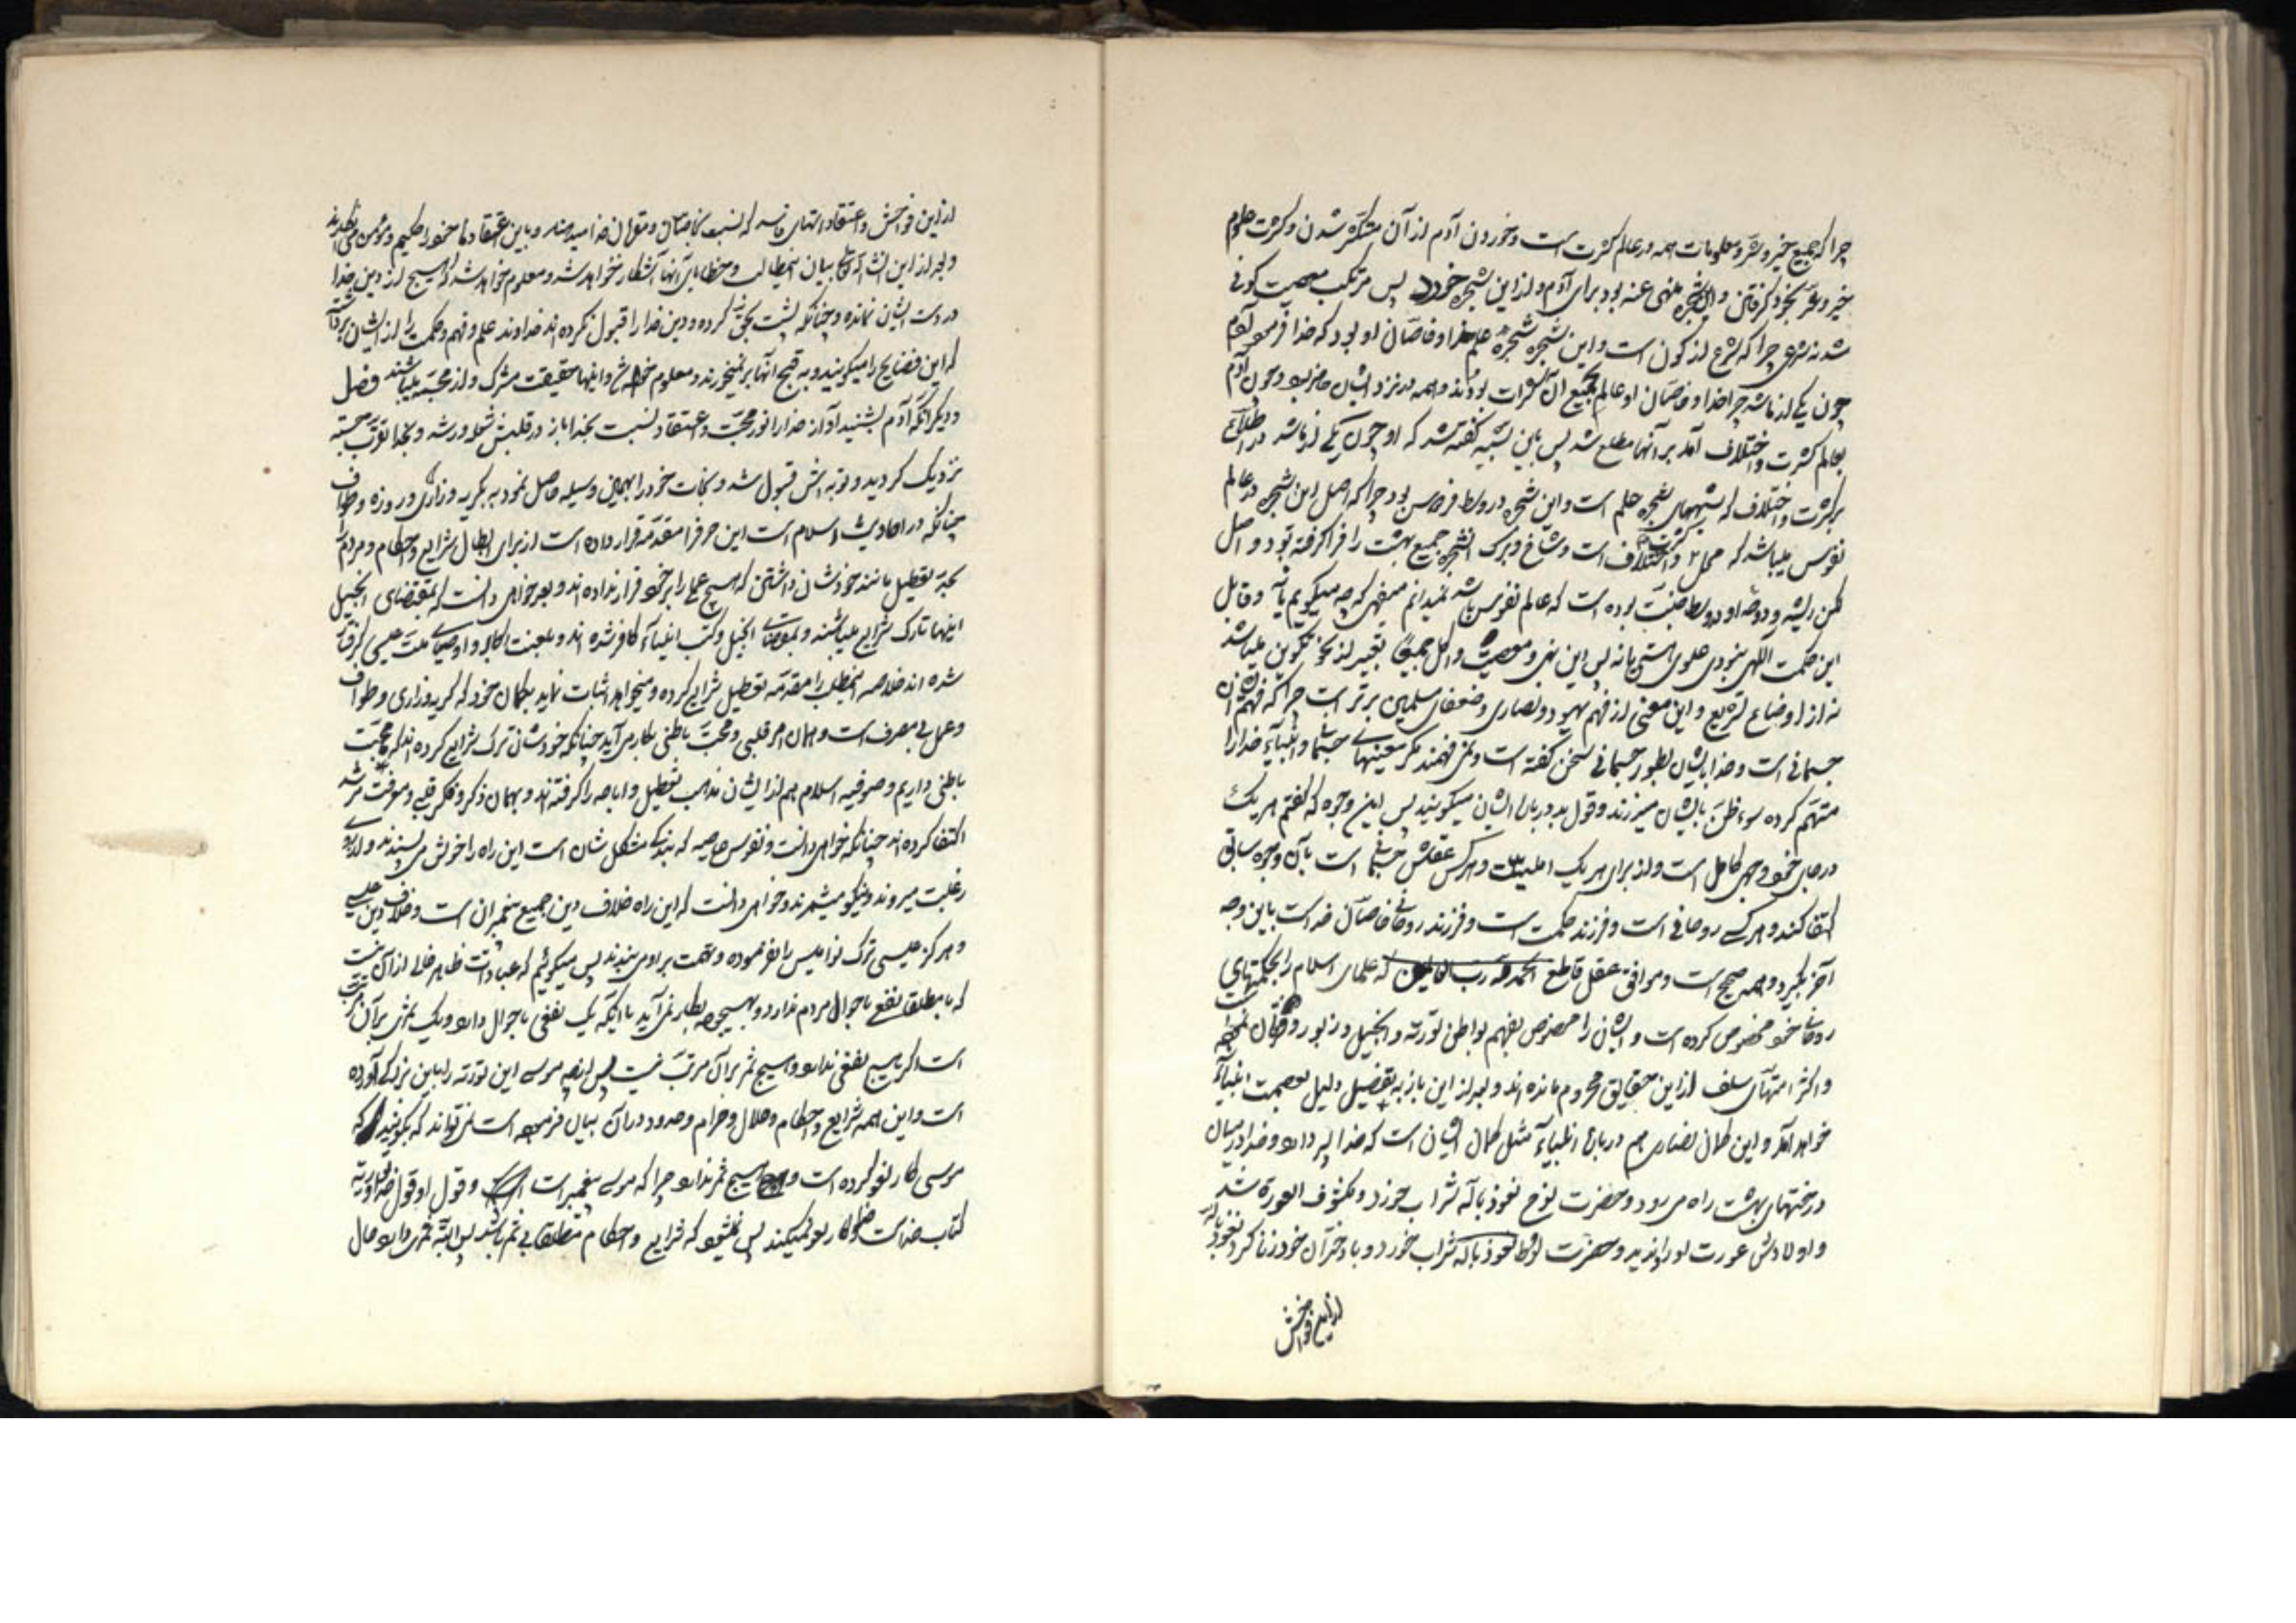 چرا که جمیع خیر و شر و معلومات همه در عالم کثرت است و خوردن آدم از آن متکثر شدن و کثرت معلوم
خیر و شر بخود گرفتن و این شجره منهی عنه بود برای آدم و از این شجره خورد پس مرتکب معصیت کونی
شد نه شرعی چرا که شرع از کون است و این شجره شجرهٔ علم خدا و خاصان او بود که خدا فرمود آدم
چون یکی از ما شد چرا خدا و خاصان او عالم بجمیع آن کثرات بودند و همه در نزد ایشان حاضر بود و چون آدم
بعالم کثرت و اختلاف آمد بر آنها مطلع شد پس باین سبب گفته شد که او چون یکی از ما شد در اطلاع
بر کثرت و اختلاف که شبیههای شجره علم است و این شجره در وسط فردوس بود چرا که اصل این شجره در عالم
نفوس میباشد که محل کثرت و اختلاف است و شاخ و برگ این شجره جمیع بهشت را فرا گرفته بود و اصل
کن ریشه و دوحه او در وسط جنت بوده است که عالم نفوس باشد نمیدانم میفهمی که چه میگویم یا نه و قابل
این حکمت الهی بودی یا نه پس این نهی و معصیت و اکل جمیعا تعبیر از نحو تکوین میباشد
نه از اوضاع تشریع و این معنی از فهم یهود و نصاری و ضعفای مسلمین برتر است چرا که فهم ایشان
جسمانی است و خدا بایشان بطور جسمانی سخن گفته است و نمی فهمند مگر معنیهای جسمانی و انبیاء خدا را
متهم کرده سوء ظن بایشان میزنند و قول بد دربارهٔ ایشان میگویند پس این وجوه که گفتم هر یک
در جای خود وجهی کامل است و از برای هر یک اهلیست و هر کس عقلش جسمانی است بآن وجوه سابق
اکتفا کند و هر کس روحانی است و فرزند حکمت است و فرزند روحانی خاصان خداست باین وجه
آخر بگیرد و همه صحیح است و موافق عقل قاطع الحمد لله رب العالمین که علمای اسلام را بحکمتهای
روحانی خود مخصوص کرده است و ایشان را مخصوص بفهم بواطن توریة و انجیل و زبور و فرقان
و اکثر امتهای سلف از این حقایق محروم مانده اند و بعد از این باز به تفصیل دلیل عصمت انبیاء
خواهد آمد و این گمان نصاری هم دربارهٔ انبیاء مثل گمان ایشان است که خدا پسر دارد و خدا در میان
درختهای بهشت راه میرود و حضرت نوح نعوذ بالله شراب خورد و مکشوف العورة شد
و اولادش عورت او را دیدند و حضرت لوط نعوذ بالله شراب خورد و با دختران خود زنا کرد نعوذ بالله
از این فواحش
از این فواحش و اعتقاد و باین اعتقاد خود را حکیم و مؤمن
و بعد از این انشاء الله بیان این مطالب و خطاهای آنها آشکار خواهد شد و معلوم خواهد شد که هیچ از دین خدا
در دست ایشان نمانده و چنانکه پشت بحق کرده و دین خدا را قبول نکرده اند خداوند علم و فهم و حکمت را از ایشان برداشته
که این فضایح را میگویند و به قبح آنها بر نمیخورند و معلوم و اینها حقیقت مشرک و از میباشند فصل
و دیگر آنکه آدم بشنید آواز خدا را نور محبت و اعتقاد نسبت بخدا باز در قلبش شعله ور شد و بخدا تقرب جسته
نزدیک گردید و توبه اش قبول شد و نجات خود را بهمین وسیله حاصل نمود به گریه و زاری و روزه و طواف
چنانکه در احادیث اسلام است این حرف را مقدمه قرار داده است از برای ابطال شرایع و احکام و مردم را
بحد تعطیل مانند خودشان داشتن که هیچ عملی را بر خود قرار نداده اند و بعد خواهی دانست که بمقتضای انجیل
اینها تارک شرایع میباشند و بمقتضای انجیل و کتب انبیاء کافر شده اند و بلعنت و اوصیای ملت عیسی گرفتار
شده اند خلاصه این مطلب را مقدمه تعطیل شرایع کرده و میخواهد اثبات نماید بگمان خود که گریه و زاری و طواف
و عمل بی مصرف است و همان امر قلبی و محبت باطنی بکار می آید چنانکه خودشان ترک شرایع کرده اند که محبت
باطنی داریم و صوفیه اسلام هم از ایشان مذهب تعطیل و اباحه را گرفته اند و بهمان ذکر و فکر قلبی و معرفت مرشد
اکتفا کرده اند چنانکه خواهی دانست و نفوس عاصیه که بندگی مشکل شان است این راه را خوش می پسندند و از روی
رغبت میروند و نیکو میشمرند و خواهی دانست که این راه خلاف دین جمیع پیغمبران است و خلاف دین عیسی
و هرگز عیسی ترک نوامیس را نفرموده و تهمت بر او می بندند پس میگوئیم که عبادات ظاهر خالی از آن نیست
که یا مطلقا نفع باحوال مردم ندارد و بهیچوجه بکار نمی آید یا اینکه یک نفعی باحوال دارد و یک ثمری بر آن مرتب
است اگر هیچ نفعی ندارد و هیچ ثمر بر آن مرتب نیست پس از چه موسی این توریة را باین بزرگی آورده
است و این همه شرایع و احکام و حلال و حرام و حدود در آن بیان فرموده است نمی تواند که بگوید که
موسی کار لغو کرده است و هیچ ثمر ندارد چرا که موسی پیغمبر است و قول او قول خدا و توریة
کتاب خداست و خدا کار لغو نمیکند پس نمیشود که شرایع و احکام مطلقا بی ثمر باشد پس البته ثمری دارد حال